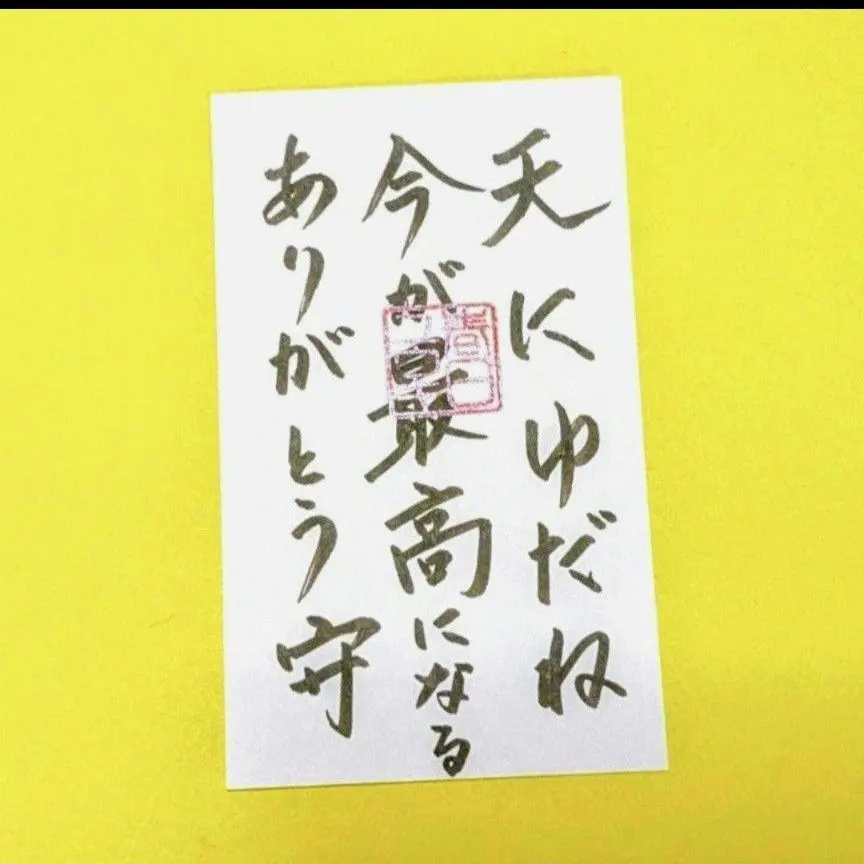 天にゆだね
今が最高になる
ありがとう守